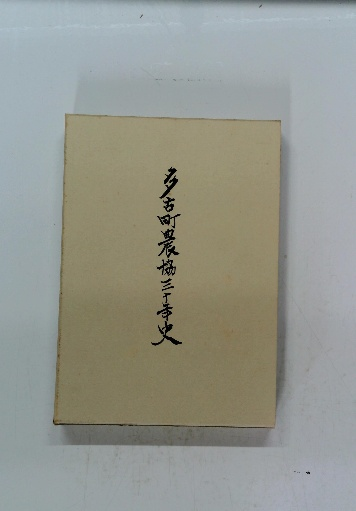 多古町農協三十年史